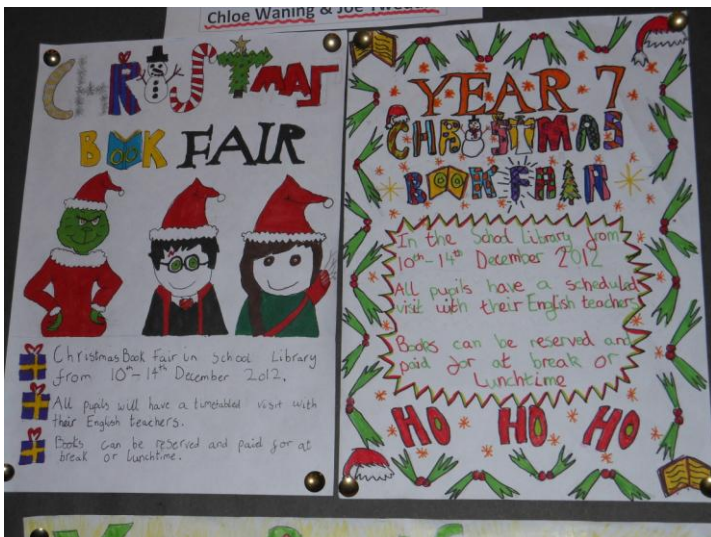 Chloe Waning & Joe
CHRISTMAS
BOOK FAIR
Christmas Book Fair in School Library
from 10th-14th December 2012.
All pupils will have a timetabled visit with
their English teachers.
Books can be reserved and paid for at
break or lunchtime.
YEAR 7
CHRISTMAS
BOOK FAIR
In the School Library from
10th-14th December 2012
All pupils have a scheduled
visit with their English teachers
Books can be reserved and
paid for at break or
Lunchtime
HO HO HO